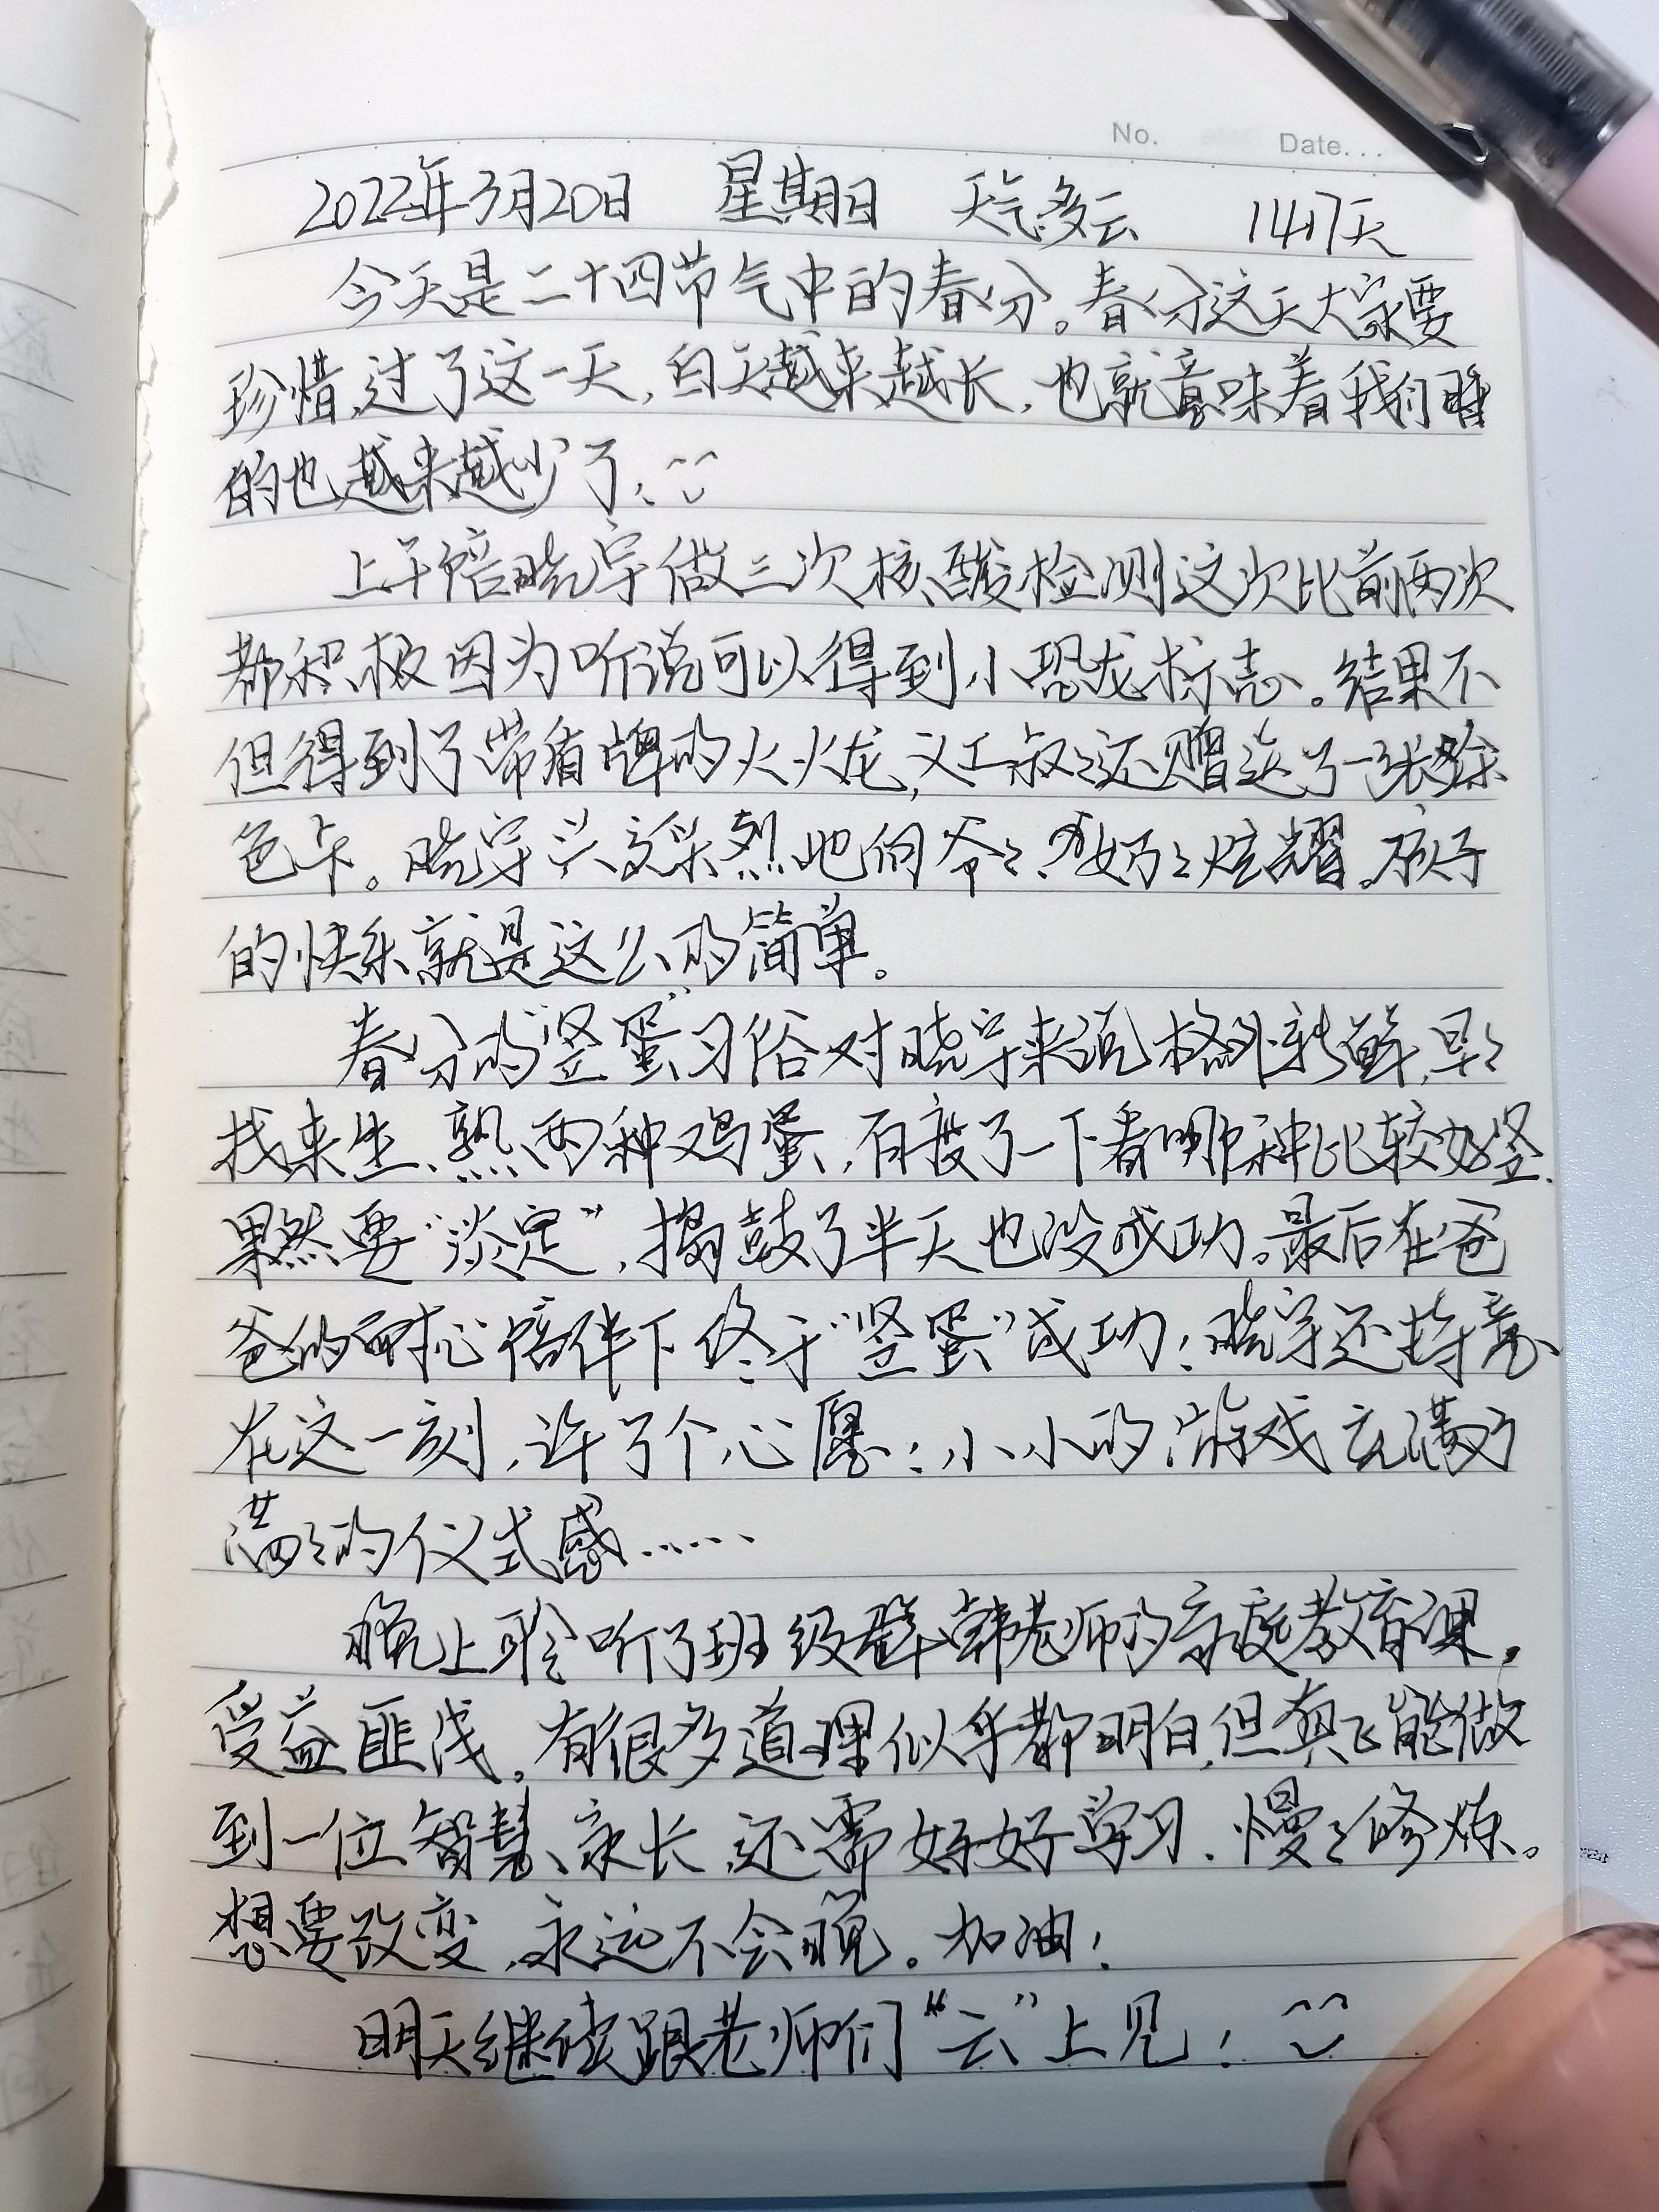 No. Date...
2022年3月20日 星期日 天气多云 1417天
今天是二十四节气中的春分。春分这天大家要
珍惜,过了这一天,白天越来越长,也就意味着我们睡
的也越来越少了;
上午陪晓宇做三次核酸检测这次比前两次
都积极因为听说可以得到小恐龙标志。结果不
但得到了带盾牌的火火龙,义工叔叔还赠送了一张绿
色卡。晓宇兴高采烈地向爷爷、奶奶炫耀。孩子
的快乐就是这么的简单。
春分的“竖蛋”习俗对晓宇来说格外新鲜,早早
找来生、熟两种鸡蛋,百度了一下看哪种比较好竖.
果然要“淡定”,捣鼓了半天也没成功。最后在爸
爸的耐心陪伴下终于“竖蛋”成功!晓宇还特意
在这一刻,许了个心愿!小小的游戏充满了
满满的仪式感……
晚上聆听了班级群韩老师的家庭教育课,
受益匪浅。有很多道理似乎都明白,但真正能做
到一位智慧家长,还需好好学习.慢慢修炼。
想要改变,永远不会晚。加油!
明天继续跟老师们“云”上见!